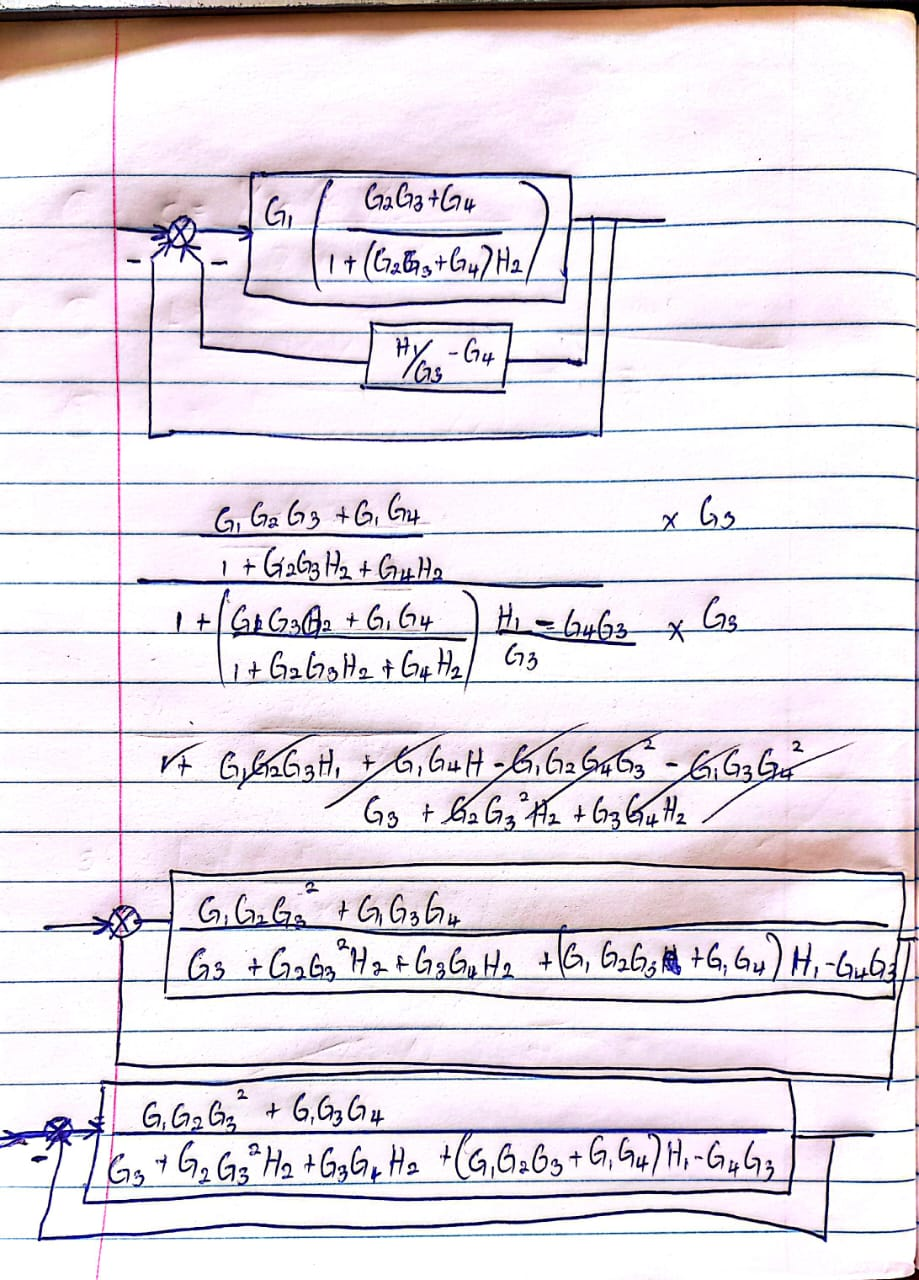 G₁ ( G₂G₃ + G₄
1 + (G₂G₃ + G₄)H₂ )
- -
H₁/G₃ - G₄
G₁ G₂ G₃ + G₁ G₄ × G₃
1 + G₂G₃H₂ + G₄H₂
1 + ( G₁ G₃G₂ + G₁ G₄ ) H₁ - G₄G₃ × G₃
1 + G₂G₃H₂ + G₄H₂ G₃
1+ G₁G₂G₃H₁ + G₁G₄H - G₁G₂G₄G₃² - G₁G₃G₄²
G₃ + G₂G₃²H₂ + G₃G₄H₂
G₁G₂G₃² + G₁G₃G₄
G₃ + G₂G₃²H₂ + G₃G₄H₂ + (G₁G₂G₃ + G₁G₄) H₁ - G₄G₃
G₁G₂G₃² + G₁G₃G₄
-
G₃ + G₂G₃²H₂ + G₃G₄H₂ + (G₁G₂G₃ + G₁G₄) H₁ - G₄G₃